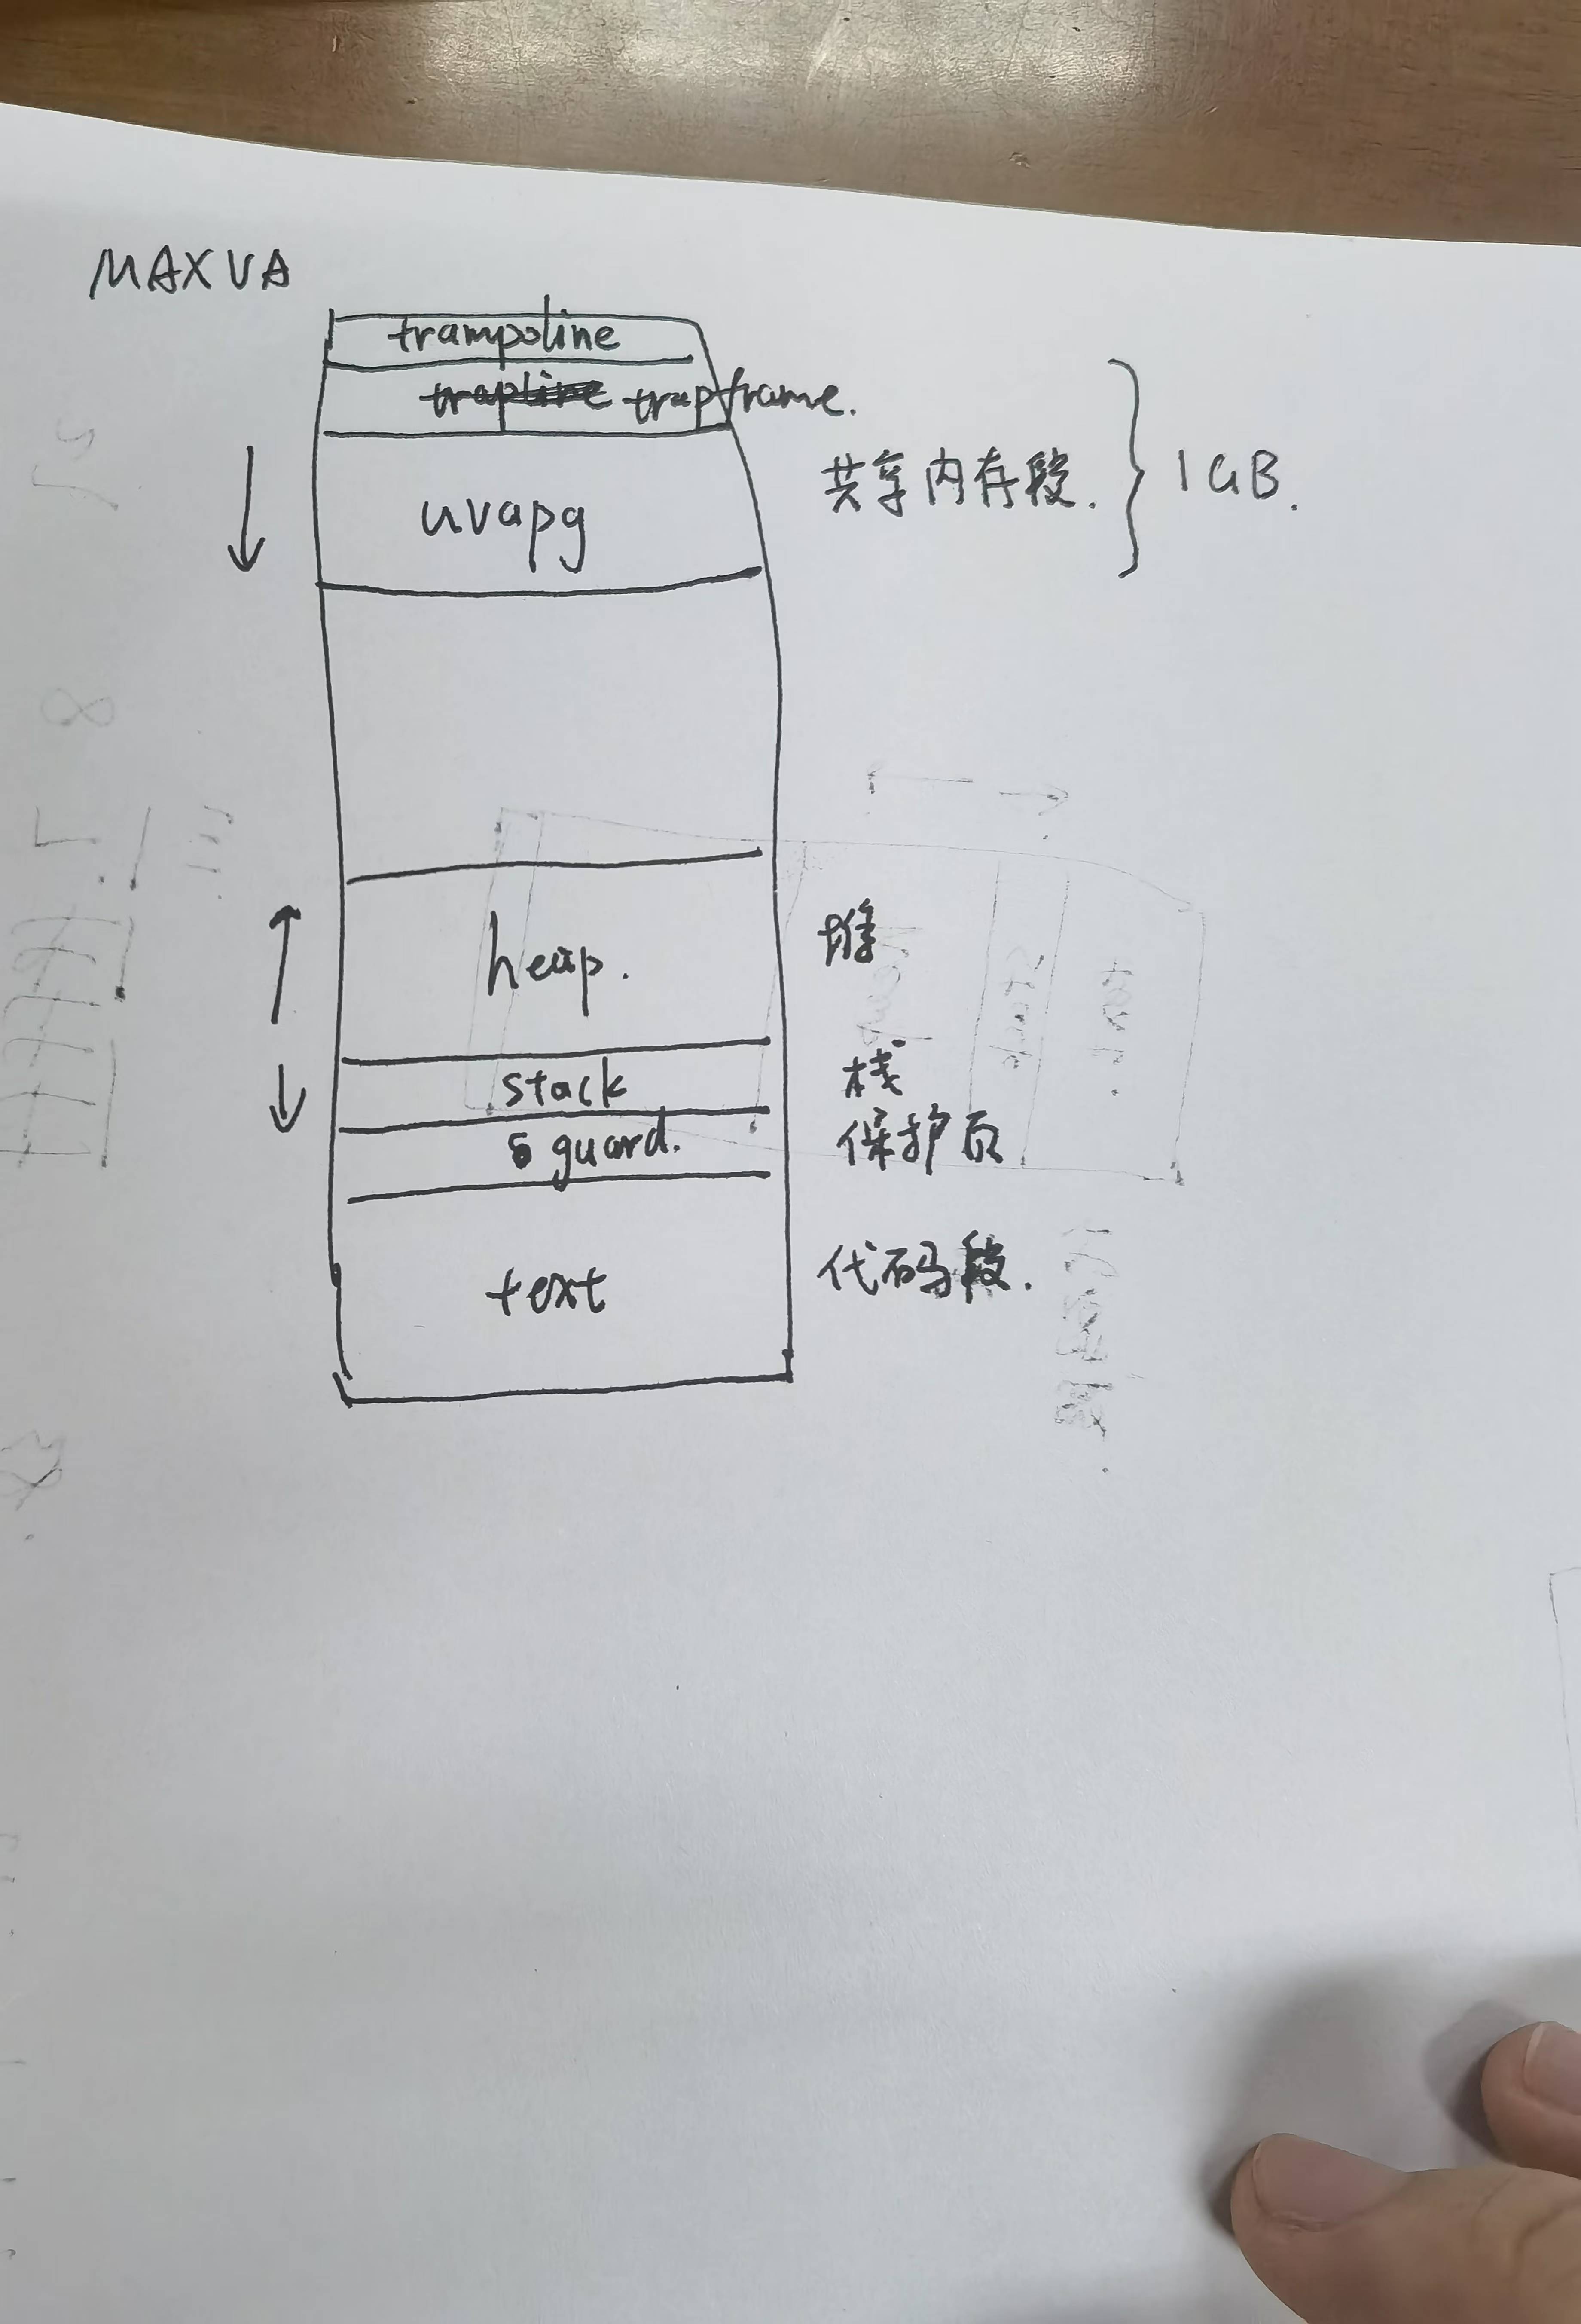 MAXVA
trampoline
trapframe.
uvapg
共享内存段.
1GB.
heap.
堆
stack
栈
guard.
保护页
text
代码段.